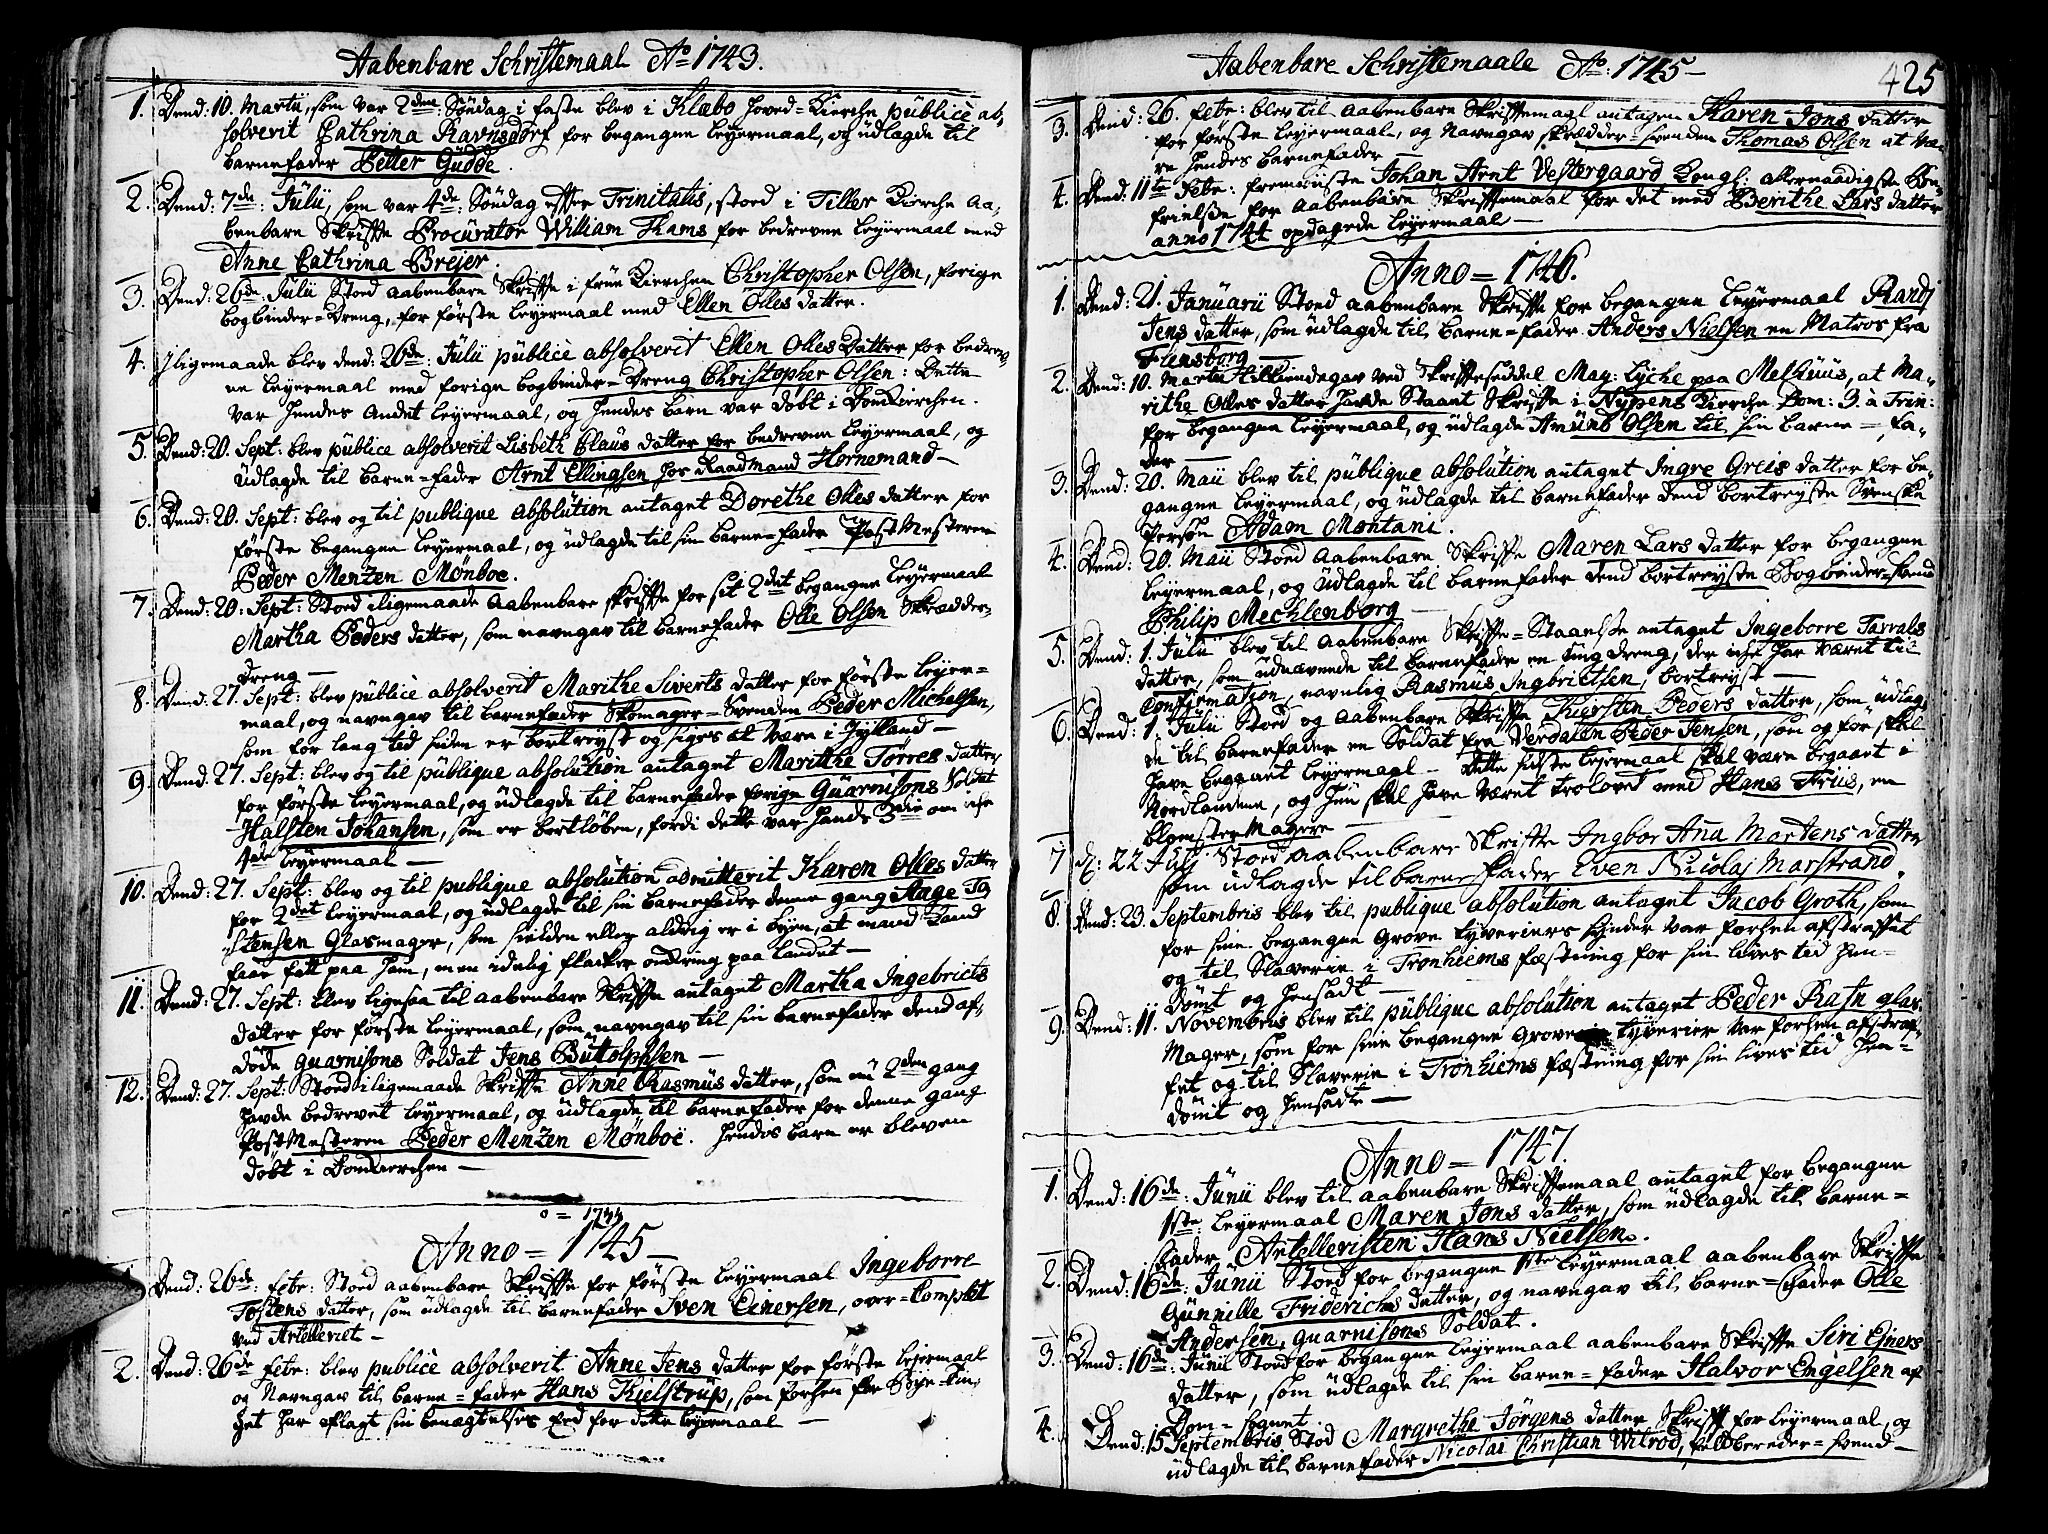 Aabenbare Schriftemaal Ao 1743.
1. Dend: 10. Martii, som var 2den Söndag i faste blev i Klæbo Hoved-Kierche publicè ab-
solverit Cathrina Ravnsdorf for begangne Leyermaal, og udlagde til
barnefader Petter Gudde.
2. Dend: 7de: Julii, som var 4de: Söndag efter Trinitatis, stoed i Tiller Kierche Aa-
benbare Skrifte Procurator William Hams for bedrevne Leyermaal med
Anne Cathrina Brejer.
3. Dend: 26de: Julii Stoed aabenbare Skrifte i frue Kierchen Christopher Olsen, forige
bogbinder-Dreng, for förste Leyermaal med Ellen Olles datter.
4. Iligemaade blev dend: 26de: Julii publicè absolverit Ellen Olles Datter for bedrev-
ne Leyermaal med forige bogbinder-Dreng Christopher Olsen: Dette
var hendes Andet Leyermaal, og hendes barn var döbt i DomKierchen.
5. Dend: 20. Sept: blev publice absolverit Lisbeth Claus datter for bedrevne Leyermaal, og
udlagde til barne-fader Arnt Ellingsen hos Raadmand Hornemand-
6. Dend: 20. Sept: blev og til publique absolution antaget Dorethe Olles datter for
förste begangne Leyermaal, og udlagde til sin barne-fader PostMesteren
Peder Menzen Mönboe.
7. Dend: 20. Sept: Stoed iligemaade Aabenbare skrifte for sit 2det begangne Leyermaal
Martha Peders datter, som navngav til barnefader Olle Olsen Skrædder-
dreng-
8. Dend: 27. Sept: blev publicè absolverit Marithe Siverts datter for förste Leyer-
maal, og navngav til barnefader Skomager-Svenden Peder Michelsen,
som for lang tid siden er bortreyst og siges at være i Jylland-
9. Dend: 27. Sept: blev og til publique absolution antaget Maritthe Törres datter
for förste Leyermaal, og udlagde til barnefader forige Guarnisons Soldat
Halsten Johansen, som er bortlöben, fordi dette var hands 3die om ikke
4de Leyermaal-
10. Dend: 27. Sept: blev og til publique absolution admitterit Karen Olles datter
for 2det Leyermaal, og udlagde til sin barnefader denne gang Aage To-
stensen Glasmager, som sielden eller aldrig er i byen, at mand kand
faae fatt paa ham, men idelig flacker omkring paa landet-
11. Dend: 27. Sept: blev ligesaa til aabenbare Skrifte antaget Martha Ingebricts
datter for förste Leyermaal, som navngav til sin barnefader dend af-
döde guarnisons Soldat Jens Butolphsen-
12. Dend: 27. Sept: Stoed iligemaade Skrifte Anne Rasmus datter, som nu 2den gang
hafde bedrevet Leyermaal, og udlagde til barnefader for denne gang
PostMesteren Peder Menzen Mönboe. hendis barn er bleven
döbt i DomKierchen-
o = 1744
Anno = 1745-
1. Dend: 26de: febr: Stoed aabenbare Skrifte for förste Leyermaal Ingeborre
Tostens datter, som udlagde til barnefader Sven Einersen, over-Complet
ved Artelleriet-
2. Dend: 26de febr: blev publicè absolverit Anne Jens datter for förste lejermaal
og Navngav til barne-fader Hans Kielstrup, som forhen for Bye-Tin-
get har aflagt sin benægtelses Eed for dette lejermaal-
Aabenbare Schriftemaale Ao: 1745-
425
3. Dend: 26. febr: blev til aabenbare Skriftemaal antagen Karen Jons datter
for förste Leyermaal, og Navngav skrædder-svenden Thomas Olsen at væ-
re hendes barnefader
4. Dend: 11te Febr: fremviiste Johan Arnt Vestergaard Kongl: allernaadigste Be-
frielse for aabenbare Skriftemaal for det med Berithe Lars datter
anno 1744 opdagede Leyermaal-
Anno = 1746.
1. Dend: 21. Januarii Stoed aabenbare Skrifte for begangne Leyermaal Randi
Jens datter, som udlagde til barne-fader Anders Nielsen en Matros fra
Flensborg-
2. Dend: 10. Martii tilkiendegav ved Skrifteseddel May: Lyche paa Melhuus, at Ma-
rithe Olles datter havde Staaet Skrifte i Nypens Kierche Dom: 3. a Trin:
for begangne Leyermaal, og udlagde Amund Olsen til sin barne-fa-
der-
3. Dend: 20. Maii blev til publique absolution antaget Ingre Greis datter for be-
gangne Leyermaal, og udlagde til barnefader dend bortreyste Svenske
Person Adam Montani.
4. Dend: 20. Maii Stoed Aabenbare Skrifte Maren Lars datter for begangne
Leyermaal, og udlagde til barnefader dend bortreyste Bogbinder-Svend
Philip Mechlenborg-
5. Dend: 1. Julii blev til aabenbare Skrifte-Staaelse antaget Ingeborre Tarralds
datter, som udnævnede til barnefader en ung dreng, der ichs har været til
Confirmation, navnlig Rasmus Ingbrictsen, bortreyst-
6. Dend: 1. Julii Stoed og aabenbare Skrifte Kiersten Peders datter, som udlag-
de til barnefader en Soldat fra Verdalen Peder Jensen, som og for skal
have begaaet Leyermaal- dette sidste lejermaal skal være begaaet i
Nordlandene, og hun skal have været trolovet med Hans Frus, en
blomsterMagere-
7 d: 22 Julj Stoed aabenbare Skrifte Ingbor Ana Mortens datter
som udlagde til barne fader Even Nicolaj Marstrand.
8. Dend: 23. Septembris blev til publique absolution antaget Jacob Groth, som
for sine begangne Grove tyveriers synder var forhen afstraffet
og til Slaverie i Tronheems fæstning for sin lives tid hen-
dömt og hensadt-
9. Dend: 11. Novembris blev til publique absolution antaget Peder Rasn glas-
Mager, som for sine begangne Grove tyverier var forhen afstraf-
fet og til Slaverie i Tronhiems fæstning for sin lives tid hen-
dömt og hensadte-
Anno = 1747.
1. Dend: 16de: Junii blev til aabenbare Skriftemaal antaget for begangne
1ste: Leyermaal Maren Jons datter, som udlagde til barne-
fader Artelleristen Hans Nielsen.
2. Dend: 16de: Junii Stoed for begangne 1ste Leyermaal aabenbare Skrifte
Gunnille Friderichs datter, og navngav til barne-fader Olle
Andersen, guarnisons Soldat.
3. Dend: 16de: Junii Stoed for begangne Leyermaal aabenbare Skrifte Siri Ejners
datter, som udlagde til sin barne-fader Halvor Engelsen af
Dom-sognet.
4. Dend: 15 Septembris Stod Margrethe Jörgens datter Skrift for Leyermaal, og
udlagde til barnefader Nicolai Christian Witrod, feltbereder-svend-